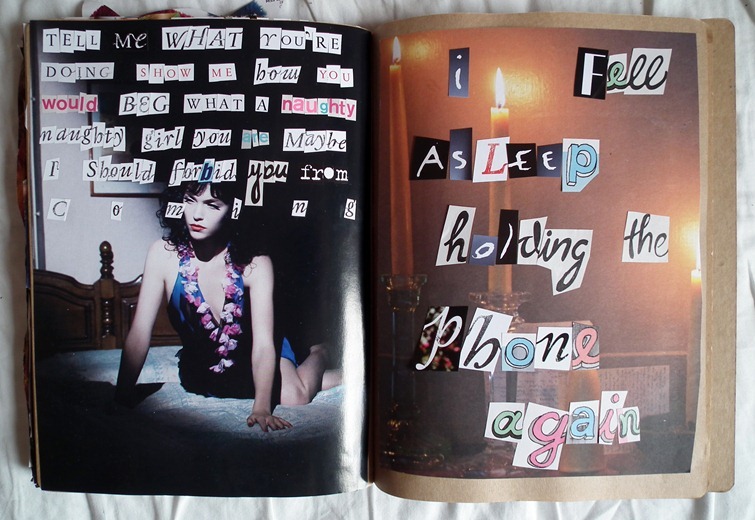 TELL Me WHAT YOU'RE
DOING SHOW ME how YOU
would BEG WHAT A naughty
naughty girl you are Maybe
I Should forbid you from
Coming
i Fell
ASLEEp
holding the
Phone
again